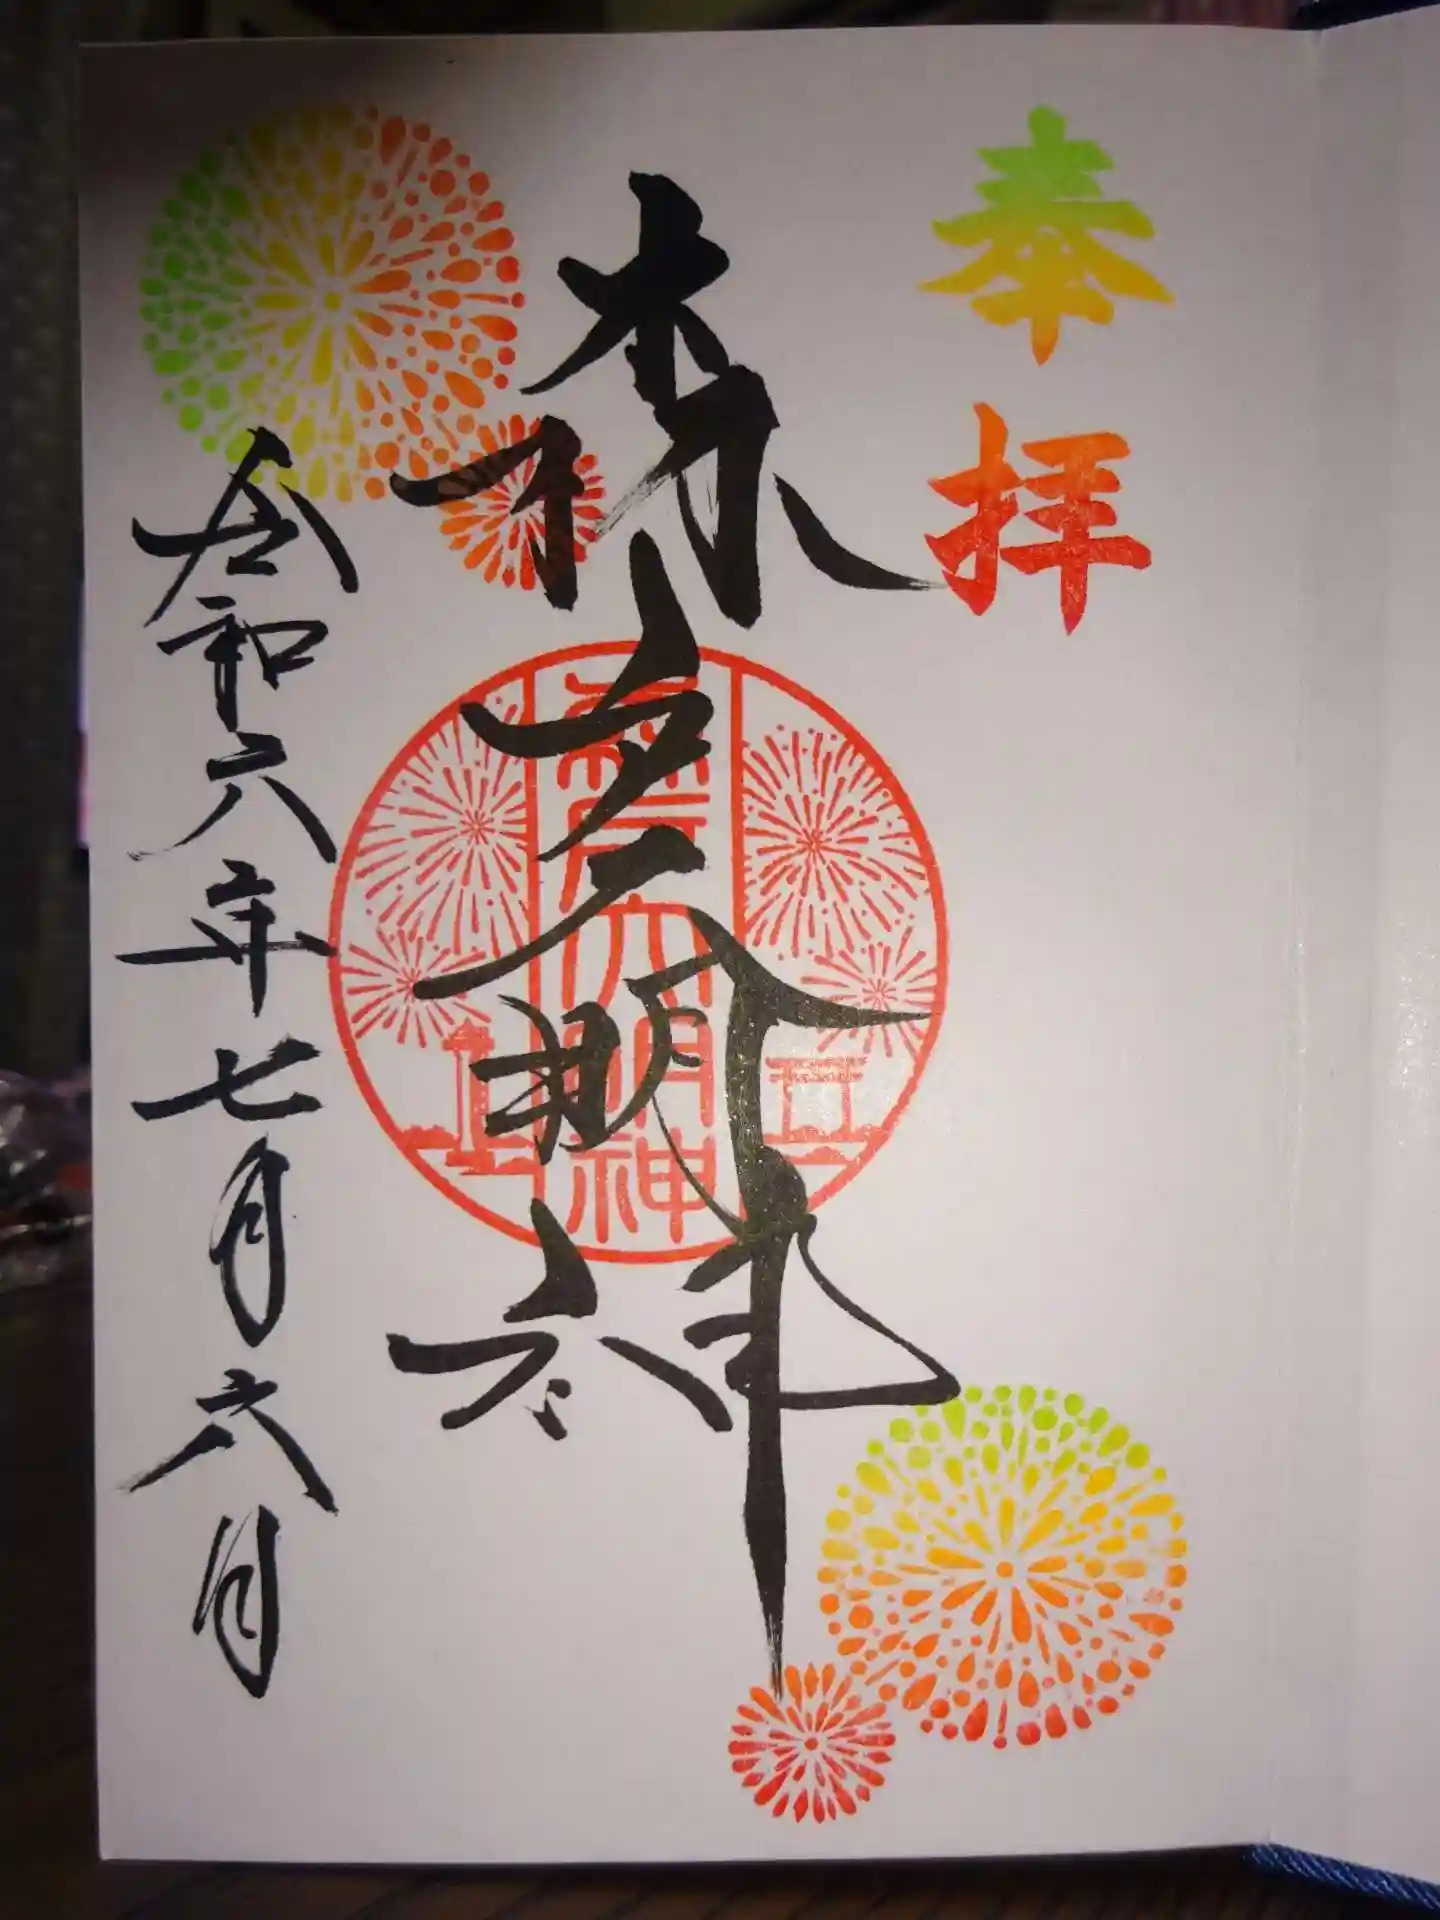 奉拝
森戸大明神
森戸大明神
令和六年七月六日